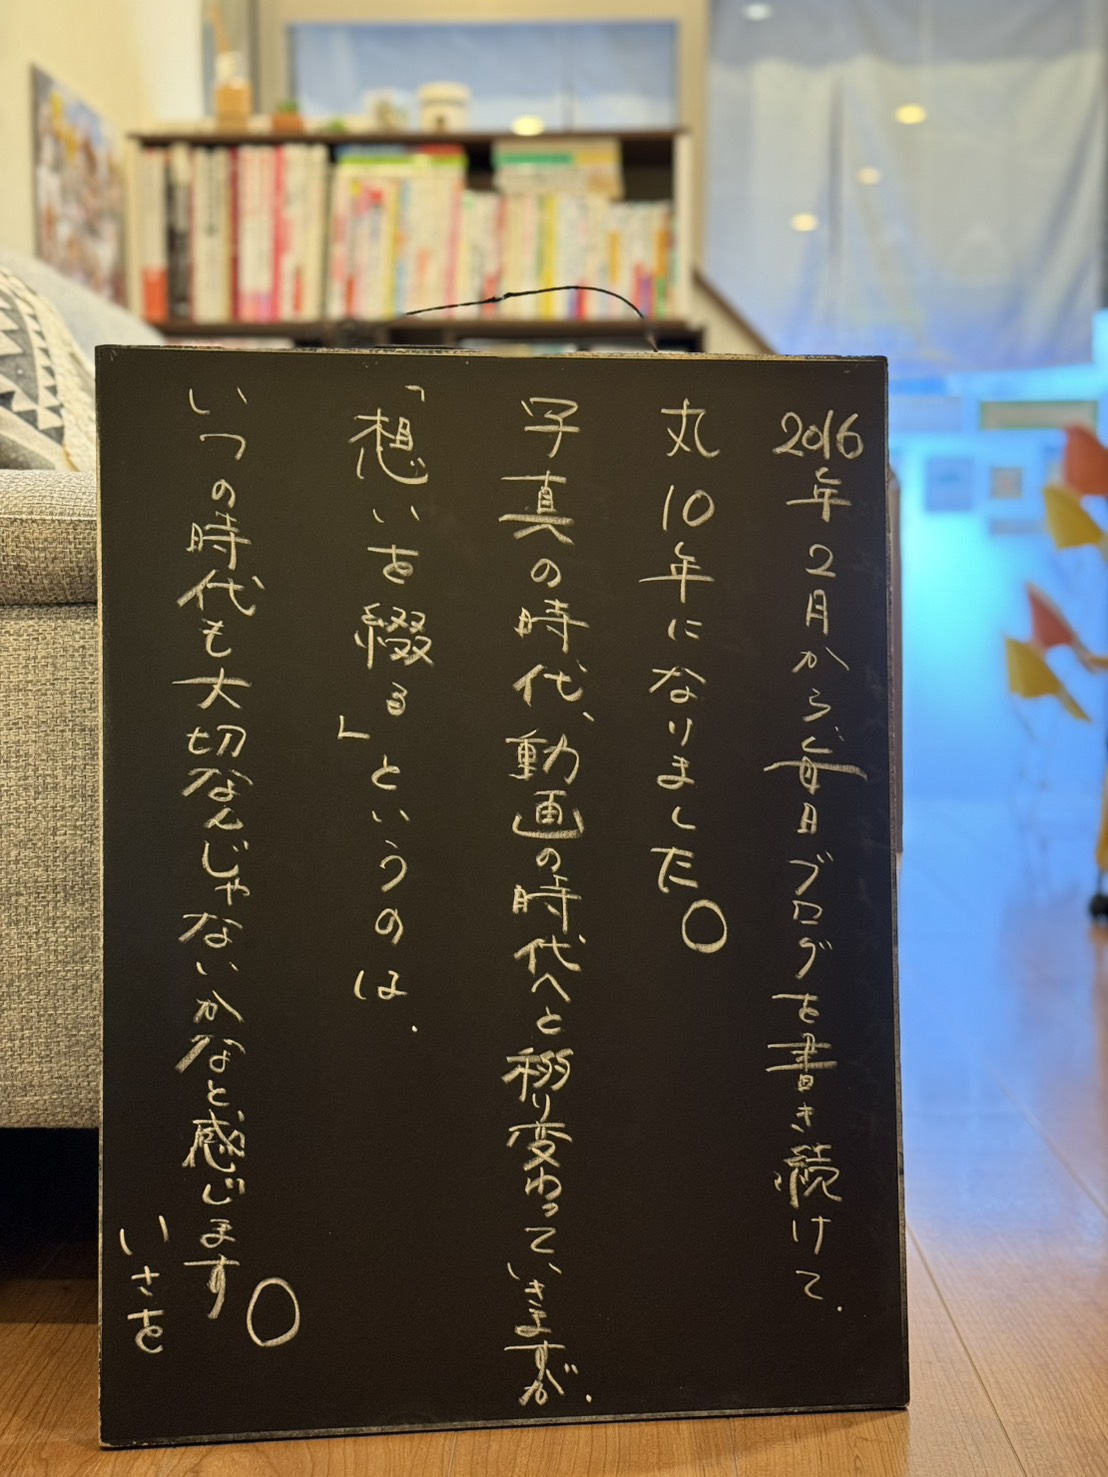 2016年2月から、毎日ブログを書き続けて、
丸10年になりました。
写真の時代、動画の時代へと移り変わっていきますが、
「想いを綴る」というのは、
いつの時代も大切なんじゃないかなと感じます。
いさを